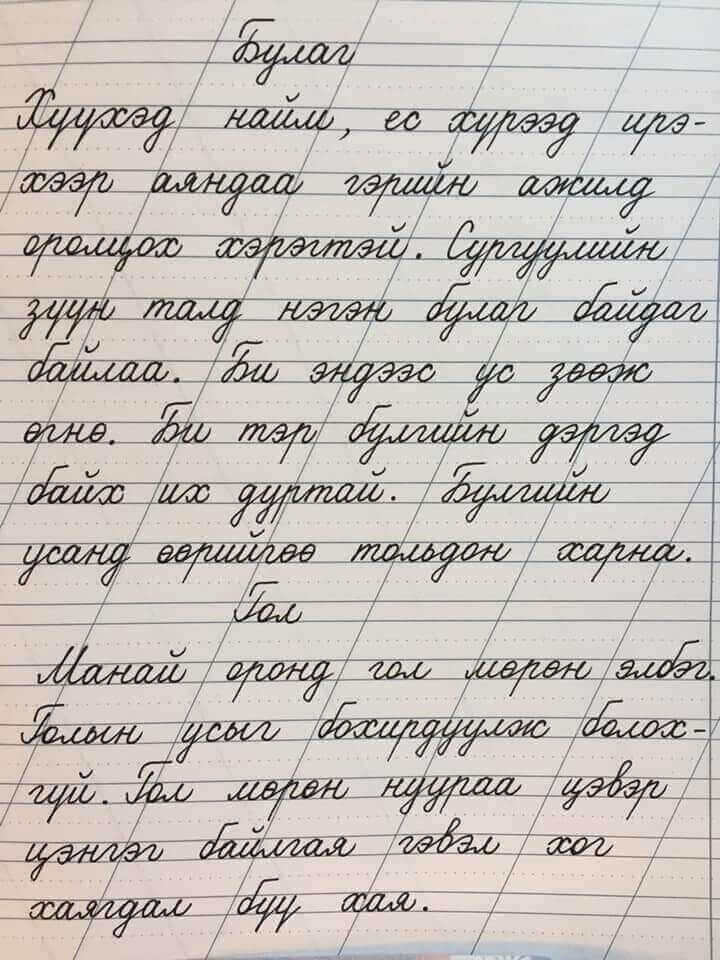 Булаг
Хүүхэд найм, ес хүрээд ирэ-
хээр аяндаа гэрийн ажилд
оролцох хэрэгтэй. Сургуулийн
зүүн талд нэгэн булаг байдаг
байлаа. Би эндээс ус зөөж
өгнө. Би тэр булгийн дэргэд
байх их дуртай. Булгийн
усанд өөрийгөө тольдон харна.
Гол
Манай оронд гол мөрөн элбэг.
Голын усыг бохирдуулж болох-
гүй. Гол мөрөн нуураа цэвэр
цэнгэг байлгая гэвэл хог
хаягдал бүү хая.